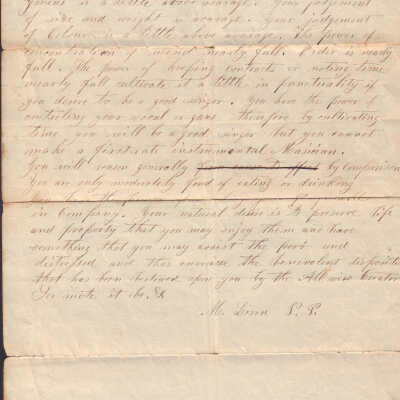 is a little above average. Your judgement
of size and weight is average. Your judgement
of Colour is a little above average. The power of
concentration of mind nearly full. Order is nearly
full. The power of keeping contracts or noting time
nearly full cultivate it a little in punctuality if
you desire to be a good singer. You have the power of
controling your vocal organs therefore by cultivating
time you will be a good singer but you cannot
make a first rate instrumental Musician.
You will reason generally by Comparison
You are only moderately fond of eating or drinking
in Company. Your natural desire is to preserve life
and property that you may enjoy them and have
something that you may assist the poor and
distressed and thus exercise the benevolent disposition
that has been bestowed upon you by the All wise Creator
So mote it be. &
M. P. P.